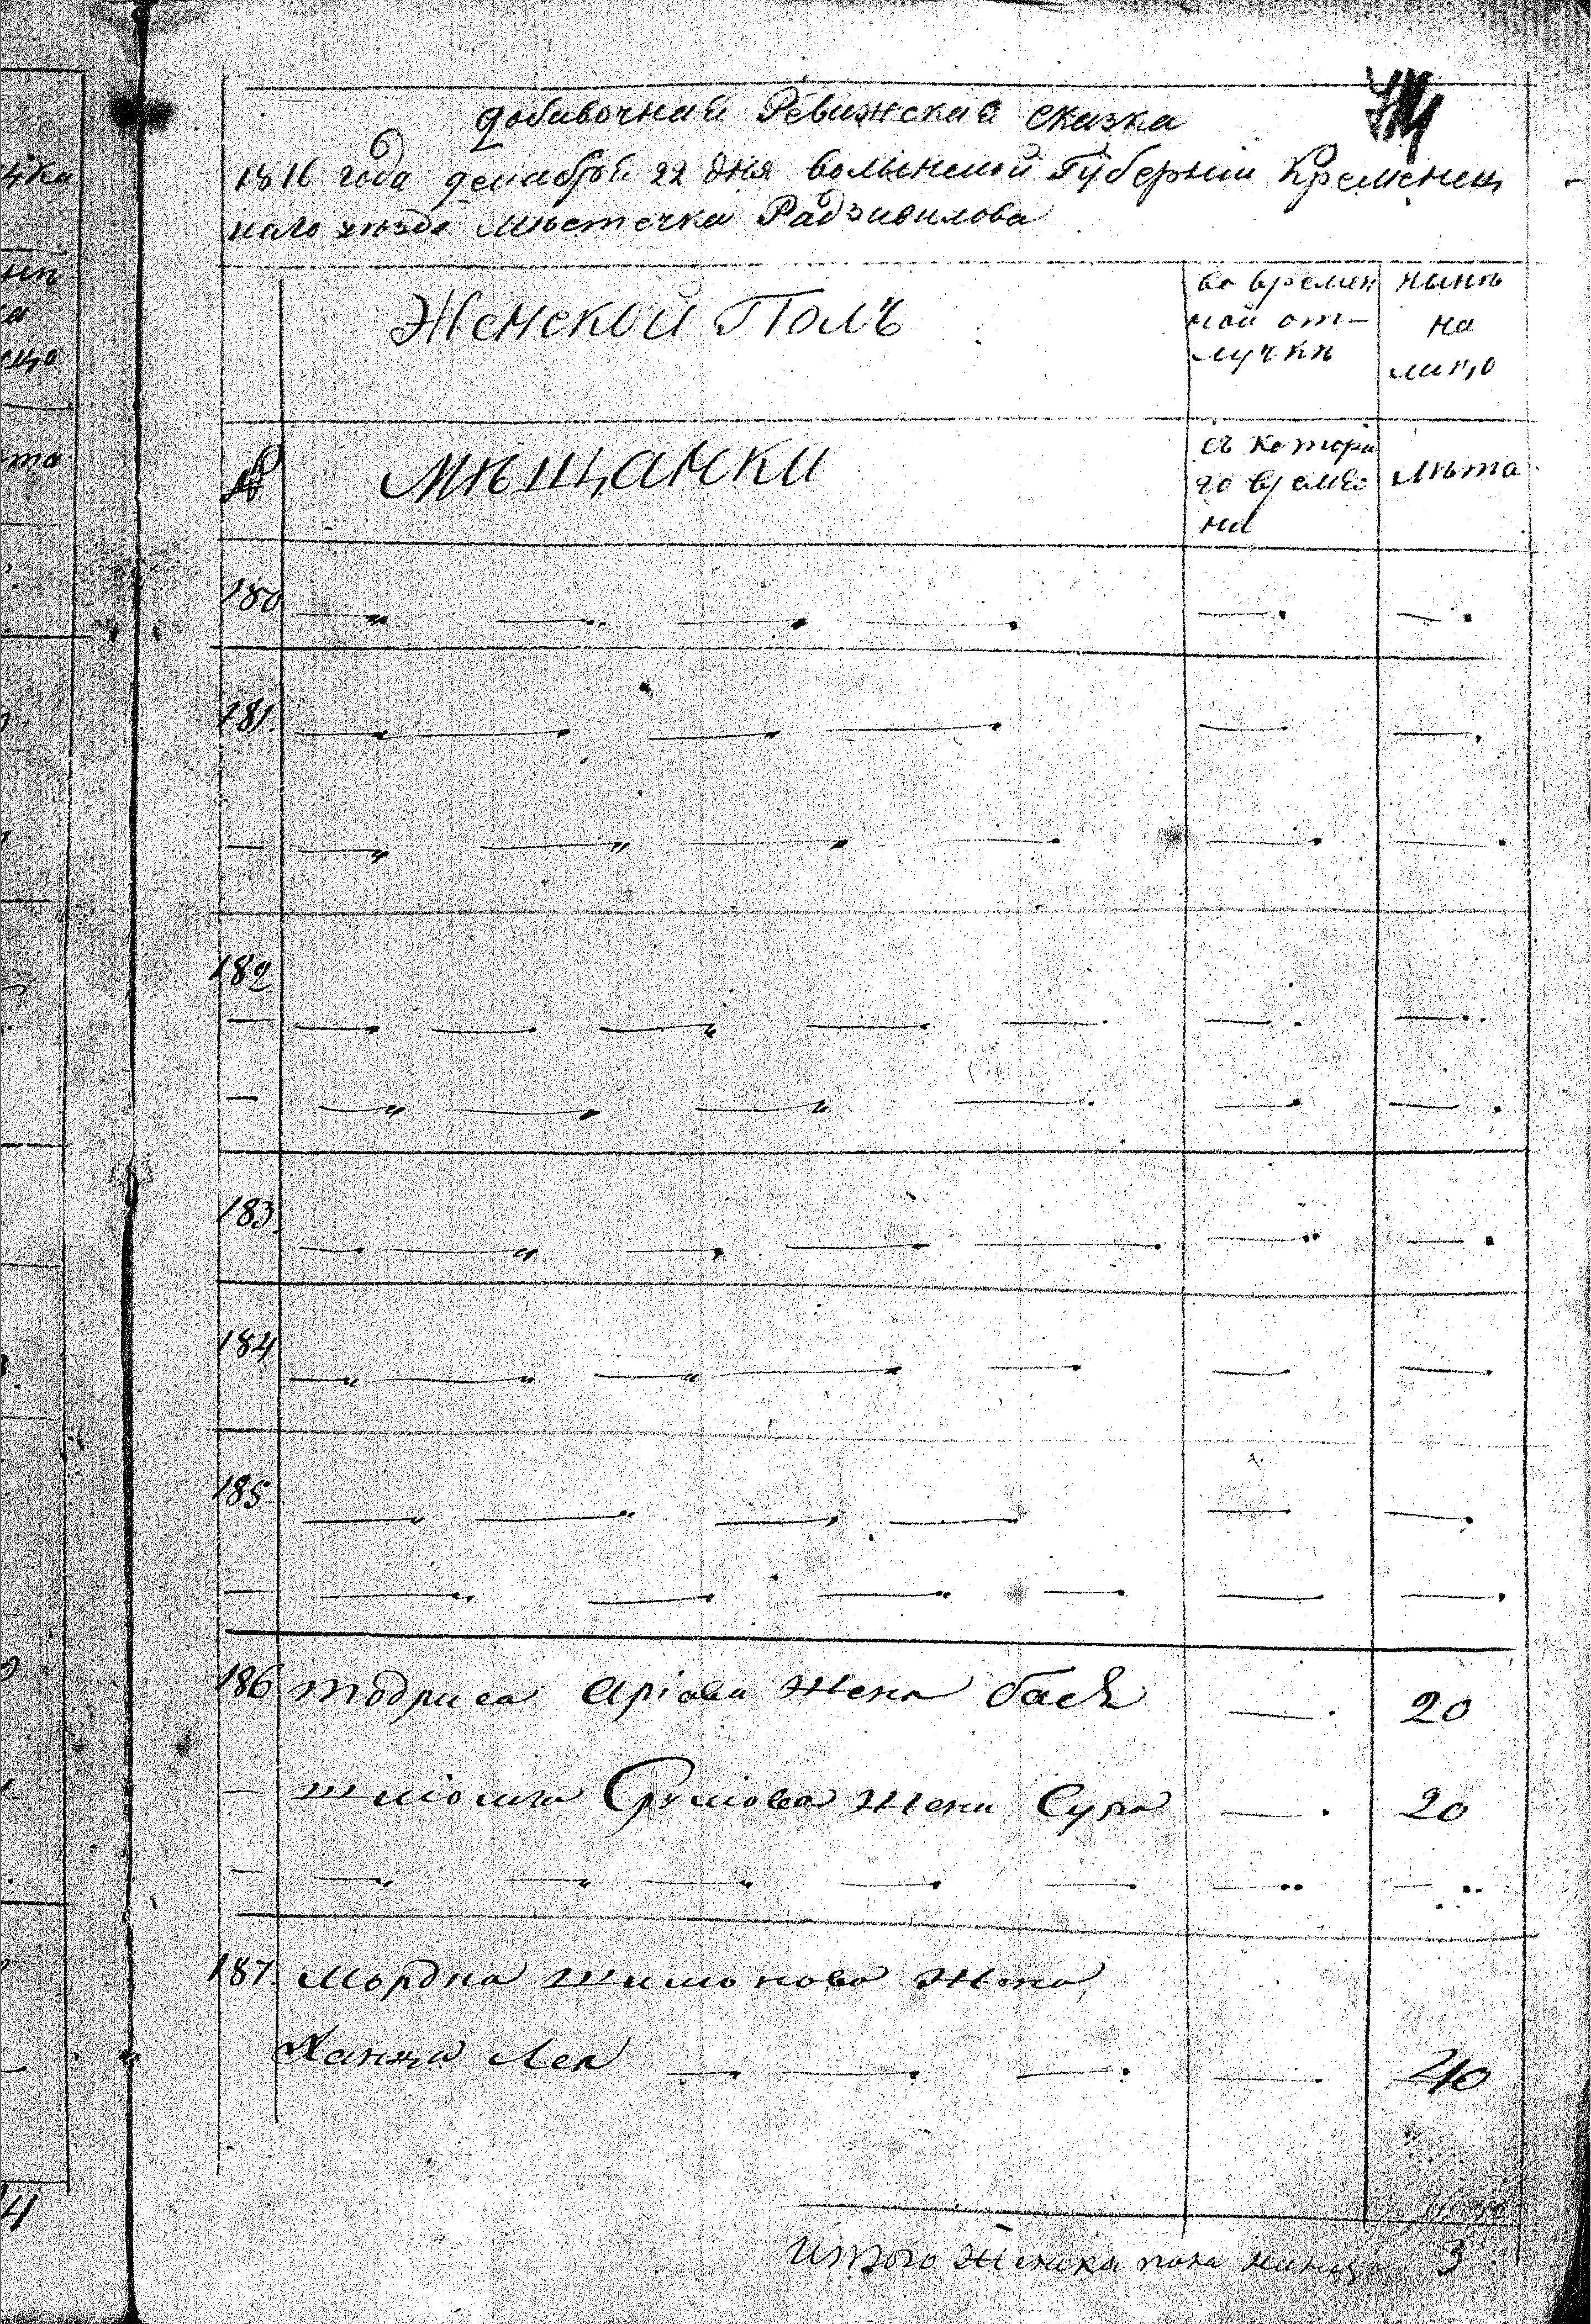 добавочная Ревижская сказка
1816 года декабря 22 дня волынской Губернии Кременец
каго уезда местечка Радзивилова
Женской Полъ
во времен
ной от-
лучкѣ
нынѣ
на
лицо
№
Мѣщанки
съ котора
го време
ни
лѣта
180
181.
182
183
184
185
186 Тодриса Аріова жена бася 20
Шліома Сруліова жена Сура 20
187. Мордка Шимонова жена
Ханца Лея 40
Итого женска пола налицо 3